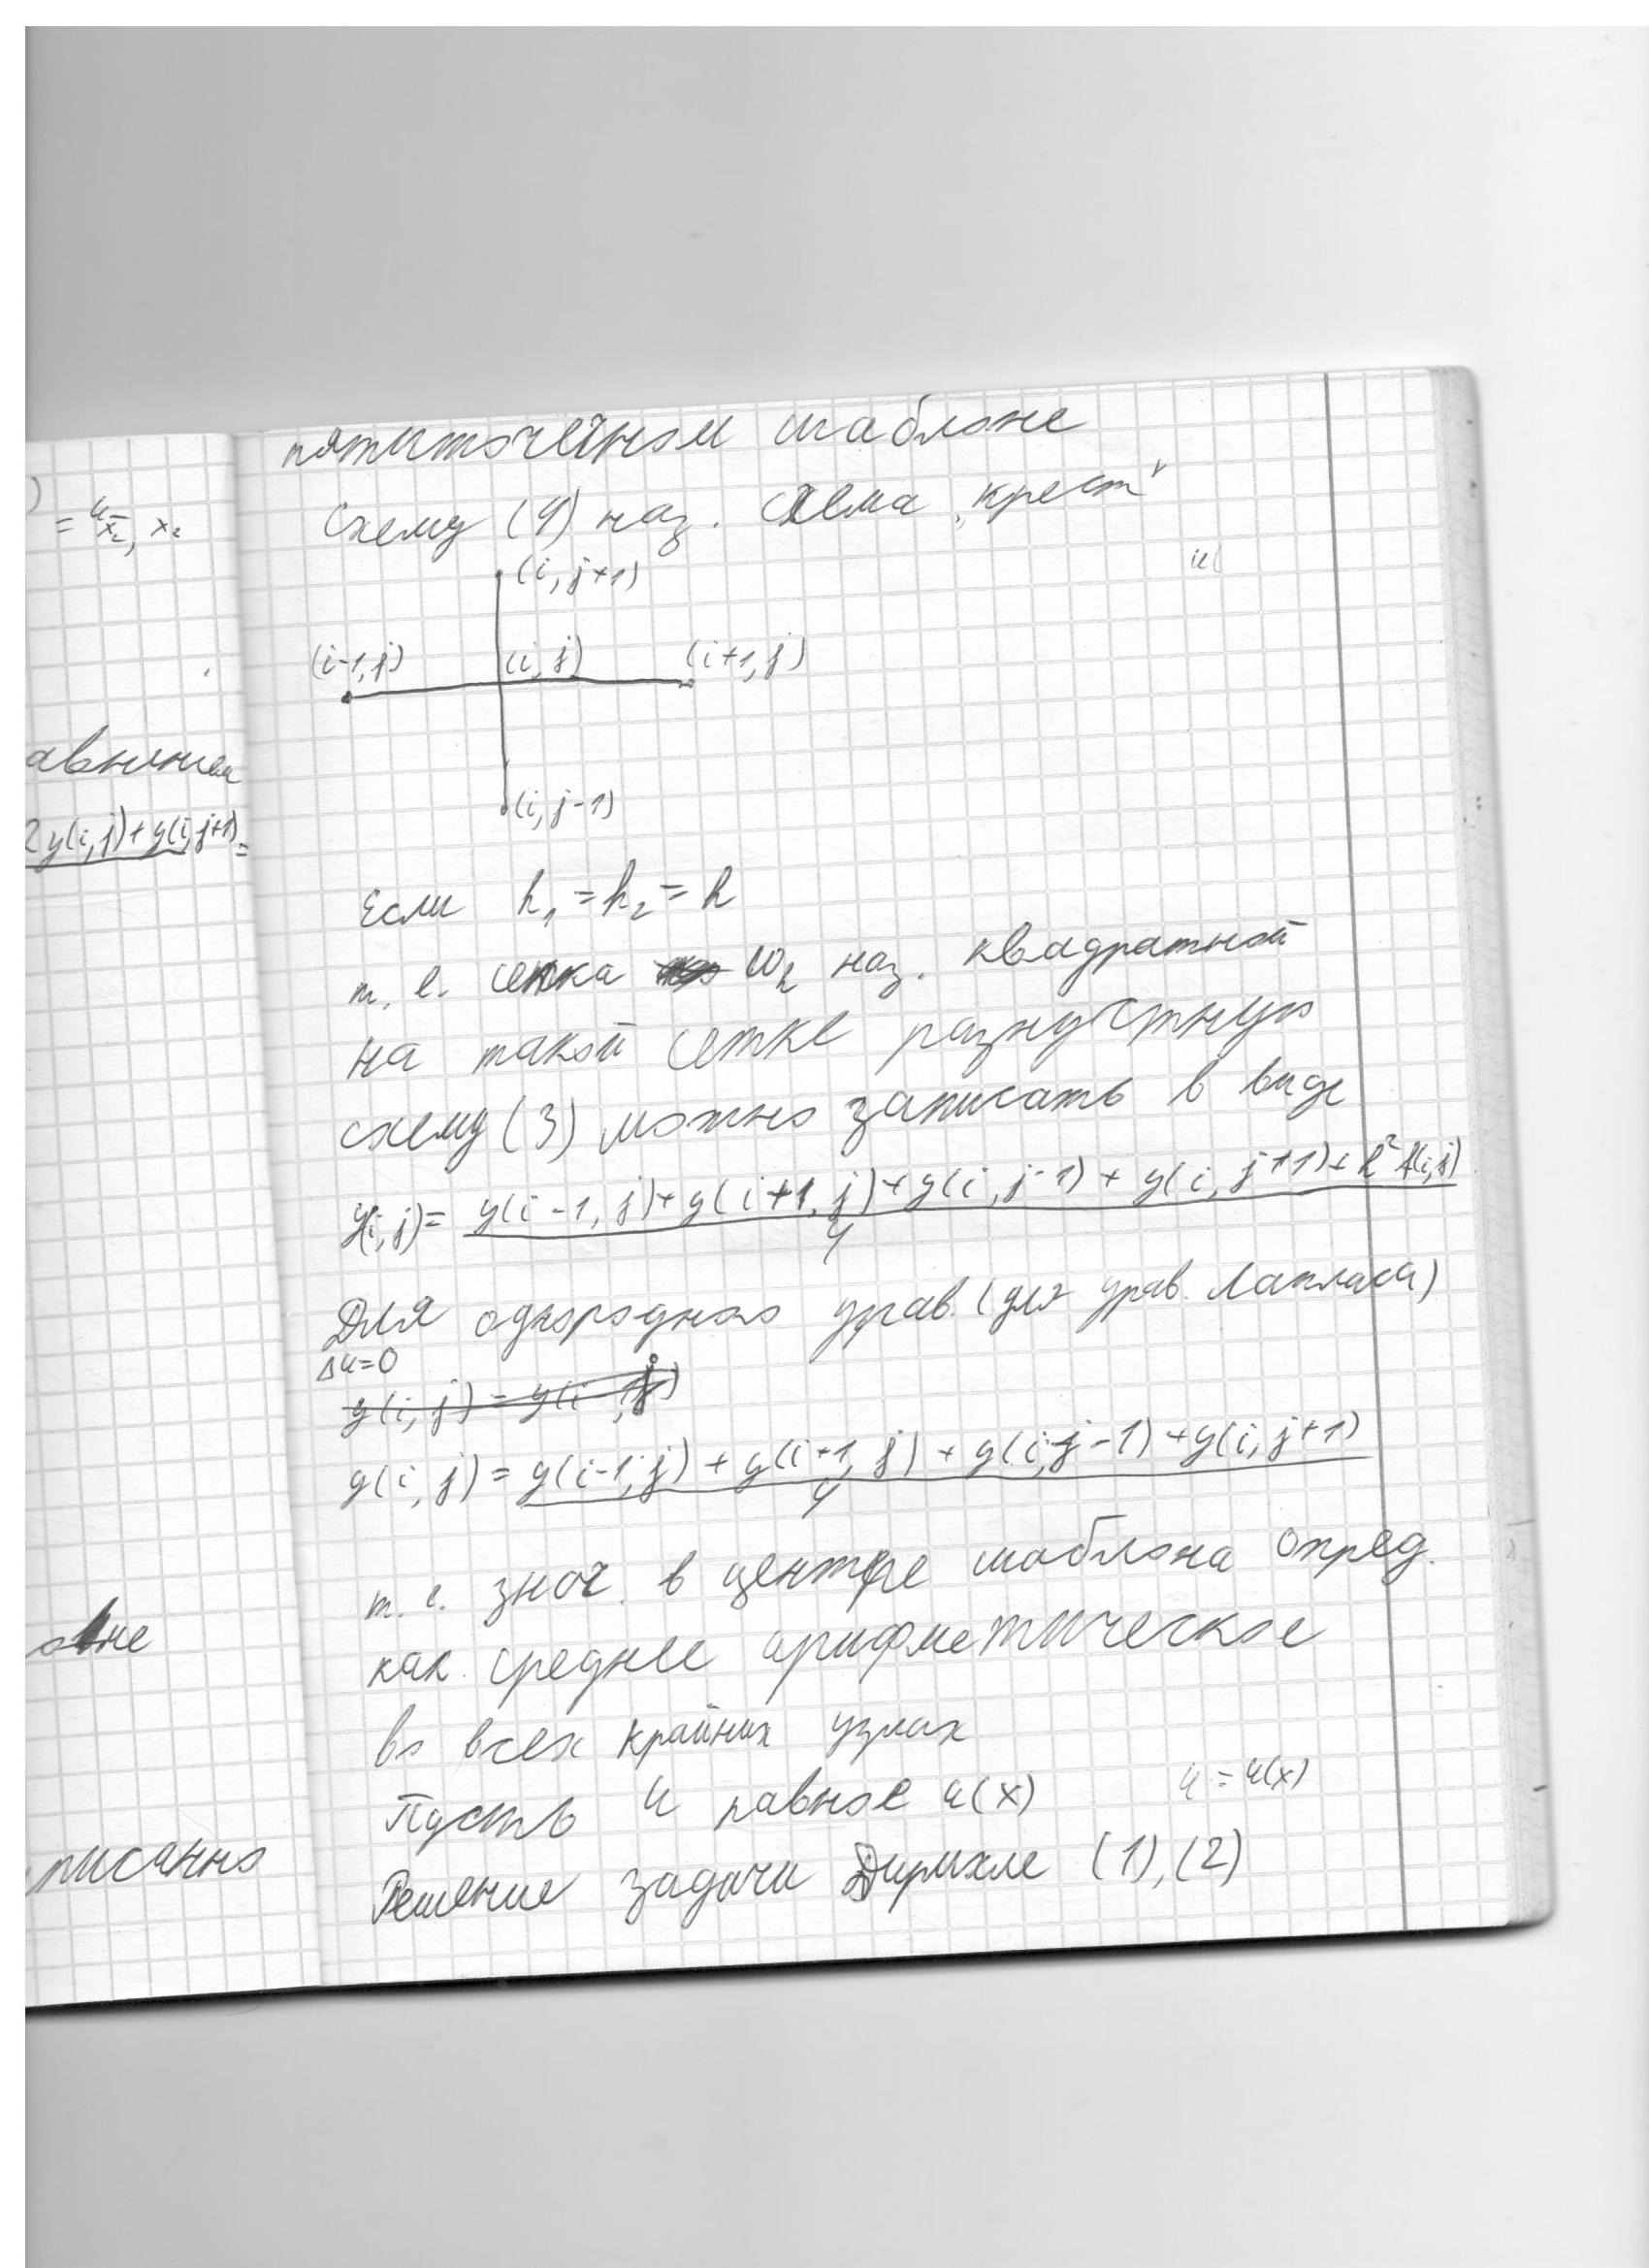 = u x̄₂, x₂
2y(i,j)+y(i,j+1) =
писанно
пятиточечном шаблоне
Схему (4) наз. схема „крест"
(i, j+1)
(i-1, j) (i, j) (i+1, j)
(i, j-1)
Если h₁ = h₂ = h
т. е. сетка ω_h наз. квадратной
на такой сетке разностную
схему (3) можно записать в виде
y(i,j) = y(i-1, j)+y(i+1, j)+y(i, j-1) + y(i, j+1)+ h² f(i,j)
4
Для однородного урав. (для урав. Лапласа)
Δu=0
y(i, j) = y(i-1, j)
y(i, j) = y(i-1, j) + y(i+1, j) + y(i, j-1) + y(i, j+1)
4
т. е. знач. в центре шаблона опред.
как среднее арифметическое
во всех крайних узлах
Пусть u равное u(x) u = u(x)
Решение задачи Дирихле (1), (2)